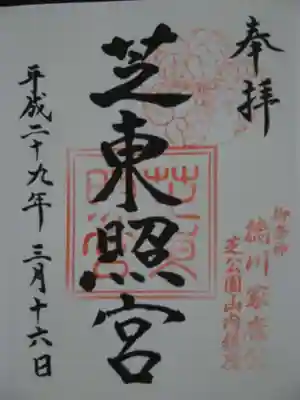 奉拝
徳川家康公
芝公園山内鎮座
芝東照宮
平成二十九年 三月十六日